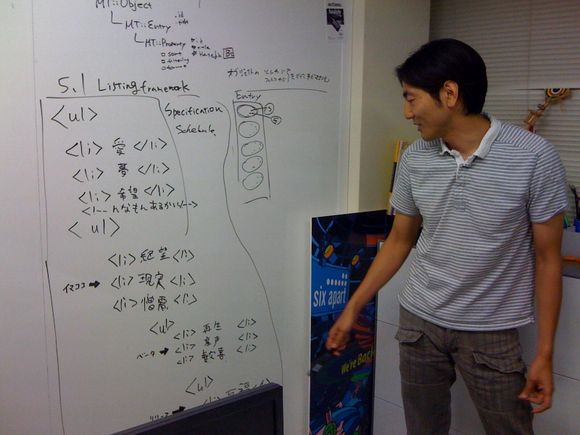 MT::Object
MT::Entry
.id
.title
MT::Property
5.1 Listing framework
<ul>
<li> 愛 </li>
<li> 夢 </li>
<li> 希望 </li>
<!-- んなもんあるかい -->
<ul>
Specification
Schedule
Entry
<li> 絶望 </li>
イマココ → <li> 現実 </li>
<li> 憎悪 </li>
<ul>
<li> 再生 </li>
ベータ → <li> 産声 </li>
<li> 歓喜 </li>
<ul>
リリース
six apart
We're Back